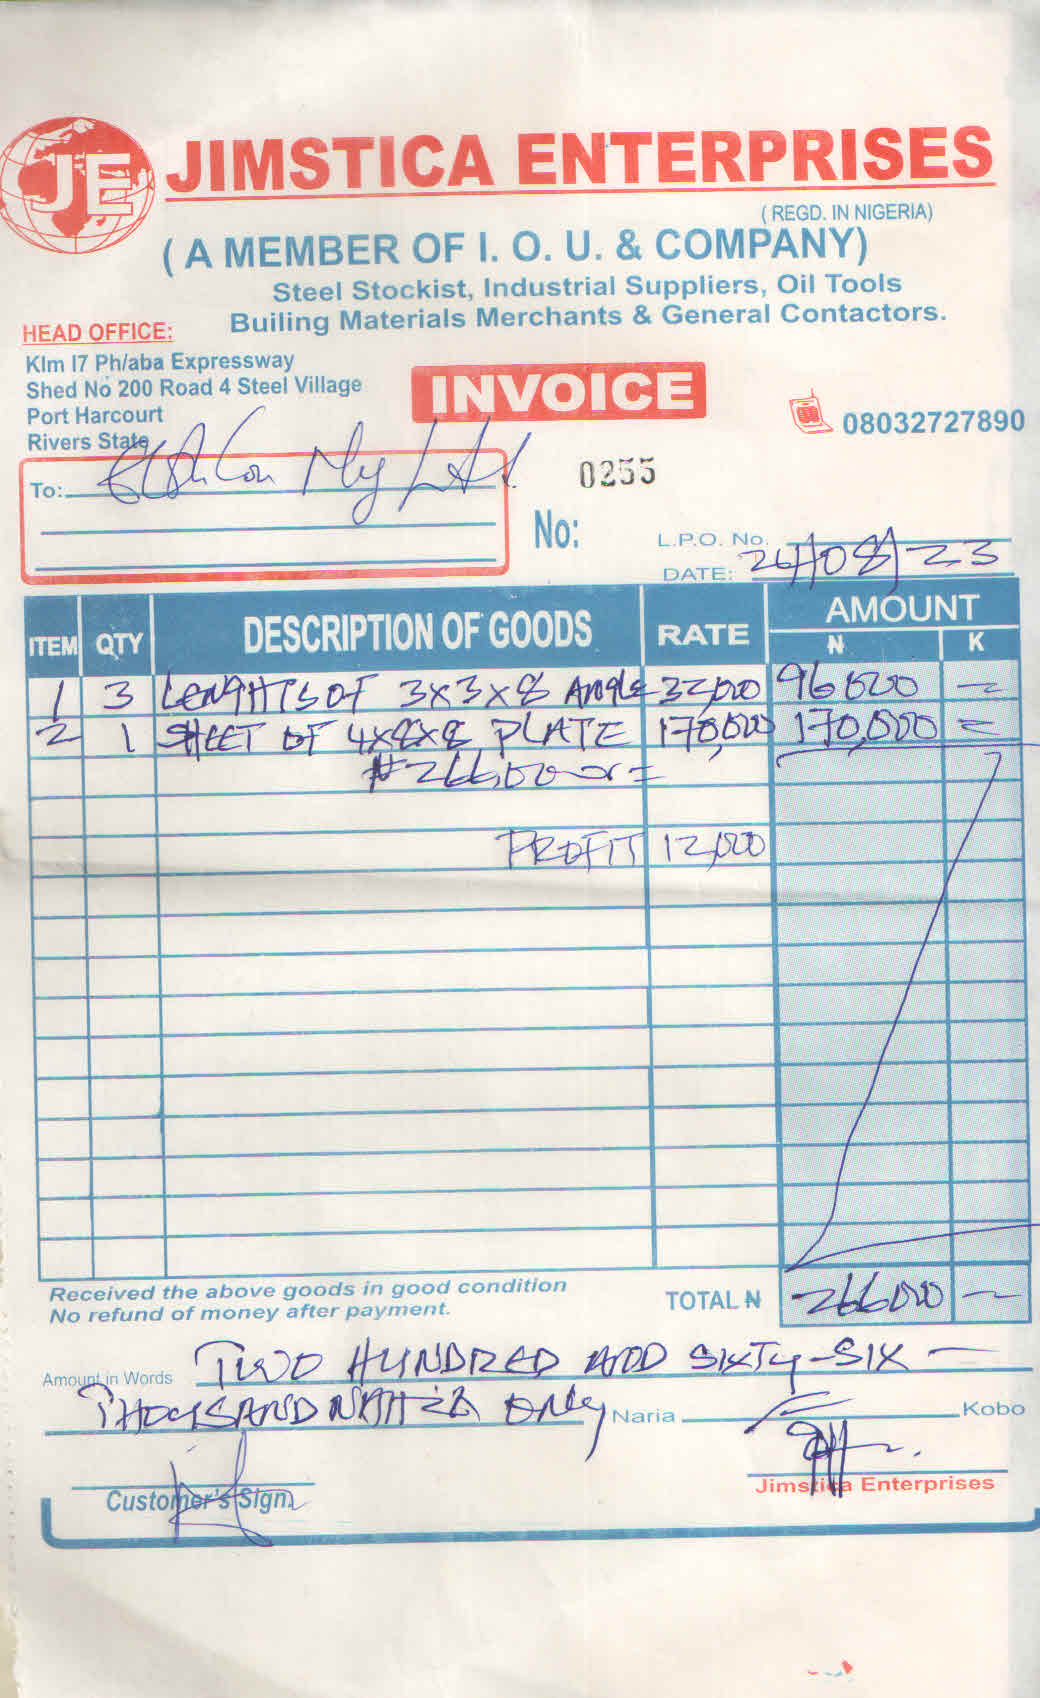 JE JIMSTICA ENTERPRISES
( REGD. IN NIGERIA)
( A MEMBER OF I. O. U. & COMPANY)
Steel Stockist, Industrial Suppliers, Oil Tools
Builing Materials Merchants & General Contactors.
HEAD OFFICE:
Klm I7 Ph/aba Expressway
Shed No 200 Road 4 Steel Village
Port Harcourt
Rivers State
INVOICE
08032727890
To:
0255
No:
L.P.O. No.
DATE: 26/08/23
ITEM QTY DESCRIPTION OF GOODS RATE AMOUNT
₦ K
1 3 LENGHTS OF 3x3x8 Angle 32,000 96000 =
2 1 SHEET OF 4x8x8 PLATE 170,000 170,000 =
₦266,000=
PROFIT 12,000
Received the above goods in good condition
No refund of money after payment.
TOTAL ₦ 266000 =
Amount in Words TWO HUNDRED AND SIXTY-SIX
THOUSAND NAIRA Only Naria Kobo
Customer's Sign.
Jimstica Enterprises